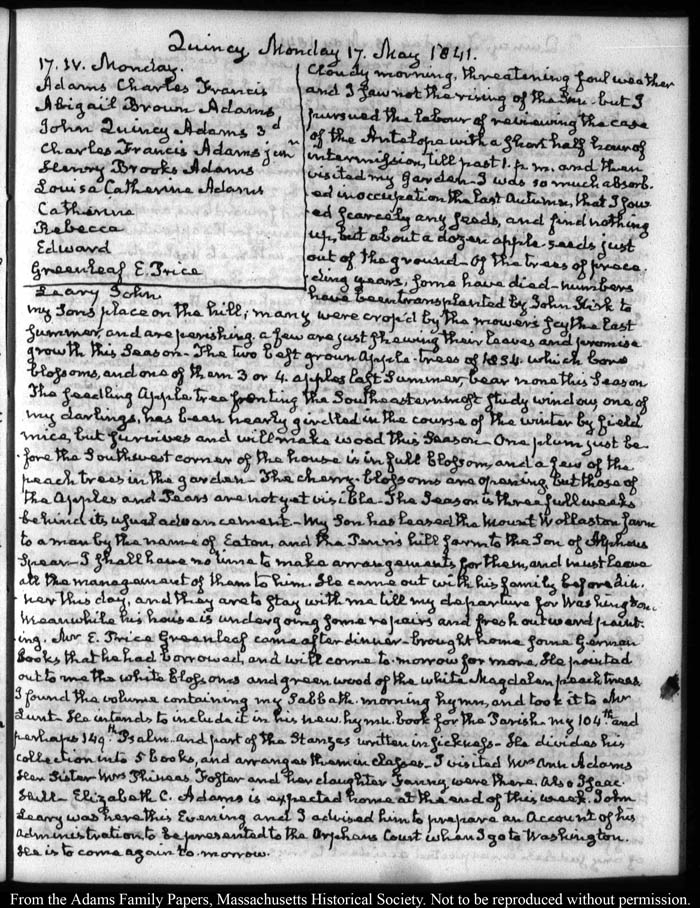 Quincy Monday 17. May 1841.
17. IV. Monday.
Adams Charles Francis
Abigail Brown Adams
John Quincy Adams 3d
Charles Francis Adams junr
Henry Brooks Adams
Louisa Catherine Adams
Catherine
Rebecca
Edward
Greenleaf E. Price
Leary John
Cloudy morning, threatening foul weather
and I saw not the rising of the Sun. but I
pursued the labour of reviewing the case
of the Antelope with a short half hour of
intermission, till past 1. p.m. and then
visited my garden. I was so much absorb-
ed in occupation the last Autumn, that I sow-
ed scarcely any seeds, and find nothing
up, but about a dozen apple-seeds just
out of the ground. Of the trees of prece-
ding years, some have died. numbers
have been transplanted by John Kirk to
my Sons place on the hill; many were crop'd by the mower's scythe the last
Summer, and are perishing. a few are just shewing their leaves and promise
growth this Season. The two best grown Apple-trees of 1834. which bore
blossoms, and one of them 3 or 4. apples last Summer, bear none this Season
The seedling Apple tree fronting the Southeasternmost study window, one of
my darlings, has been nearly girdled in the course of the winter by field
mice, but survives and will make wood this Season. One plum just be-
fore the Southwest corner of the house is in full blossom, and a few of the
peach trees in the garden. The cherry-blossoms are opening but those of
the Apples and Pears are not yet visible. The Season is three full weeks
behind its usual advancement. My Son has leased the Mount Wollaston farm
to a man by the name of Eaton, and the Penn's hill farm to the Son of Alpheus
Spear. I shall have no time to make arrangements for them, and must leave
all the management of them to him. He came out with his family before din-
ner this day, and they are to stay with me till my departure for Washington.
Meanwhile his house is undergoing some repairs and fresh outward paint-
ing. Mr E. Price Greenleaf came after dinner. brought home some German
books that he had borrowed, and will come to-morrow for more. He pointed
out to me the white blossoms and green wood of the white Magdalen peach trees
I found the volume containing my Sabbath morning hymn, and took it to Mr
Lunt. He intends to include it in his new hymn book for the Parish. my 104th and
perhaps 149th Psalm. and part of the Stanzas written in sickness. He divides his
collection into 5 books, and arranges them in classes. I visited Mrs Ann Adams
Her Sister Mrs Phineas Foster and her daughter Fanny were there. Also Isaac
Hull. Elizabeth C. Adams is expected home at the end of this week. John
Leary was here this Evening and I advised him to prepare an Account of his
administration, to be presented to the Orphans Court when I go to Washington.
He is to come again to-morrow.
From the Adams Family Papers, Massachusetts Historical Society. Not to be reproduced without permission.